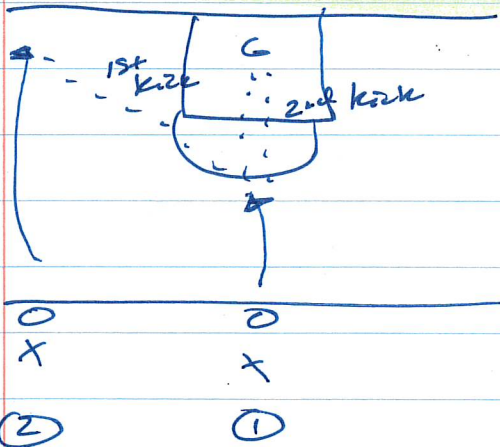 G
1st
kick
2nd kick
O O
X X
2 1